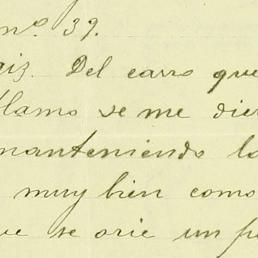 nº. 39.
aiz. Del carro que
llamo se me dier
manteniendo la
muy bien como
ve se orie un po